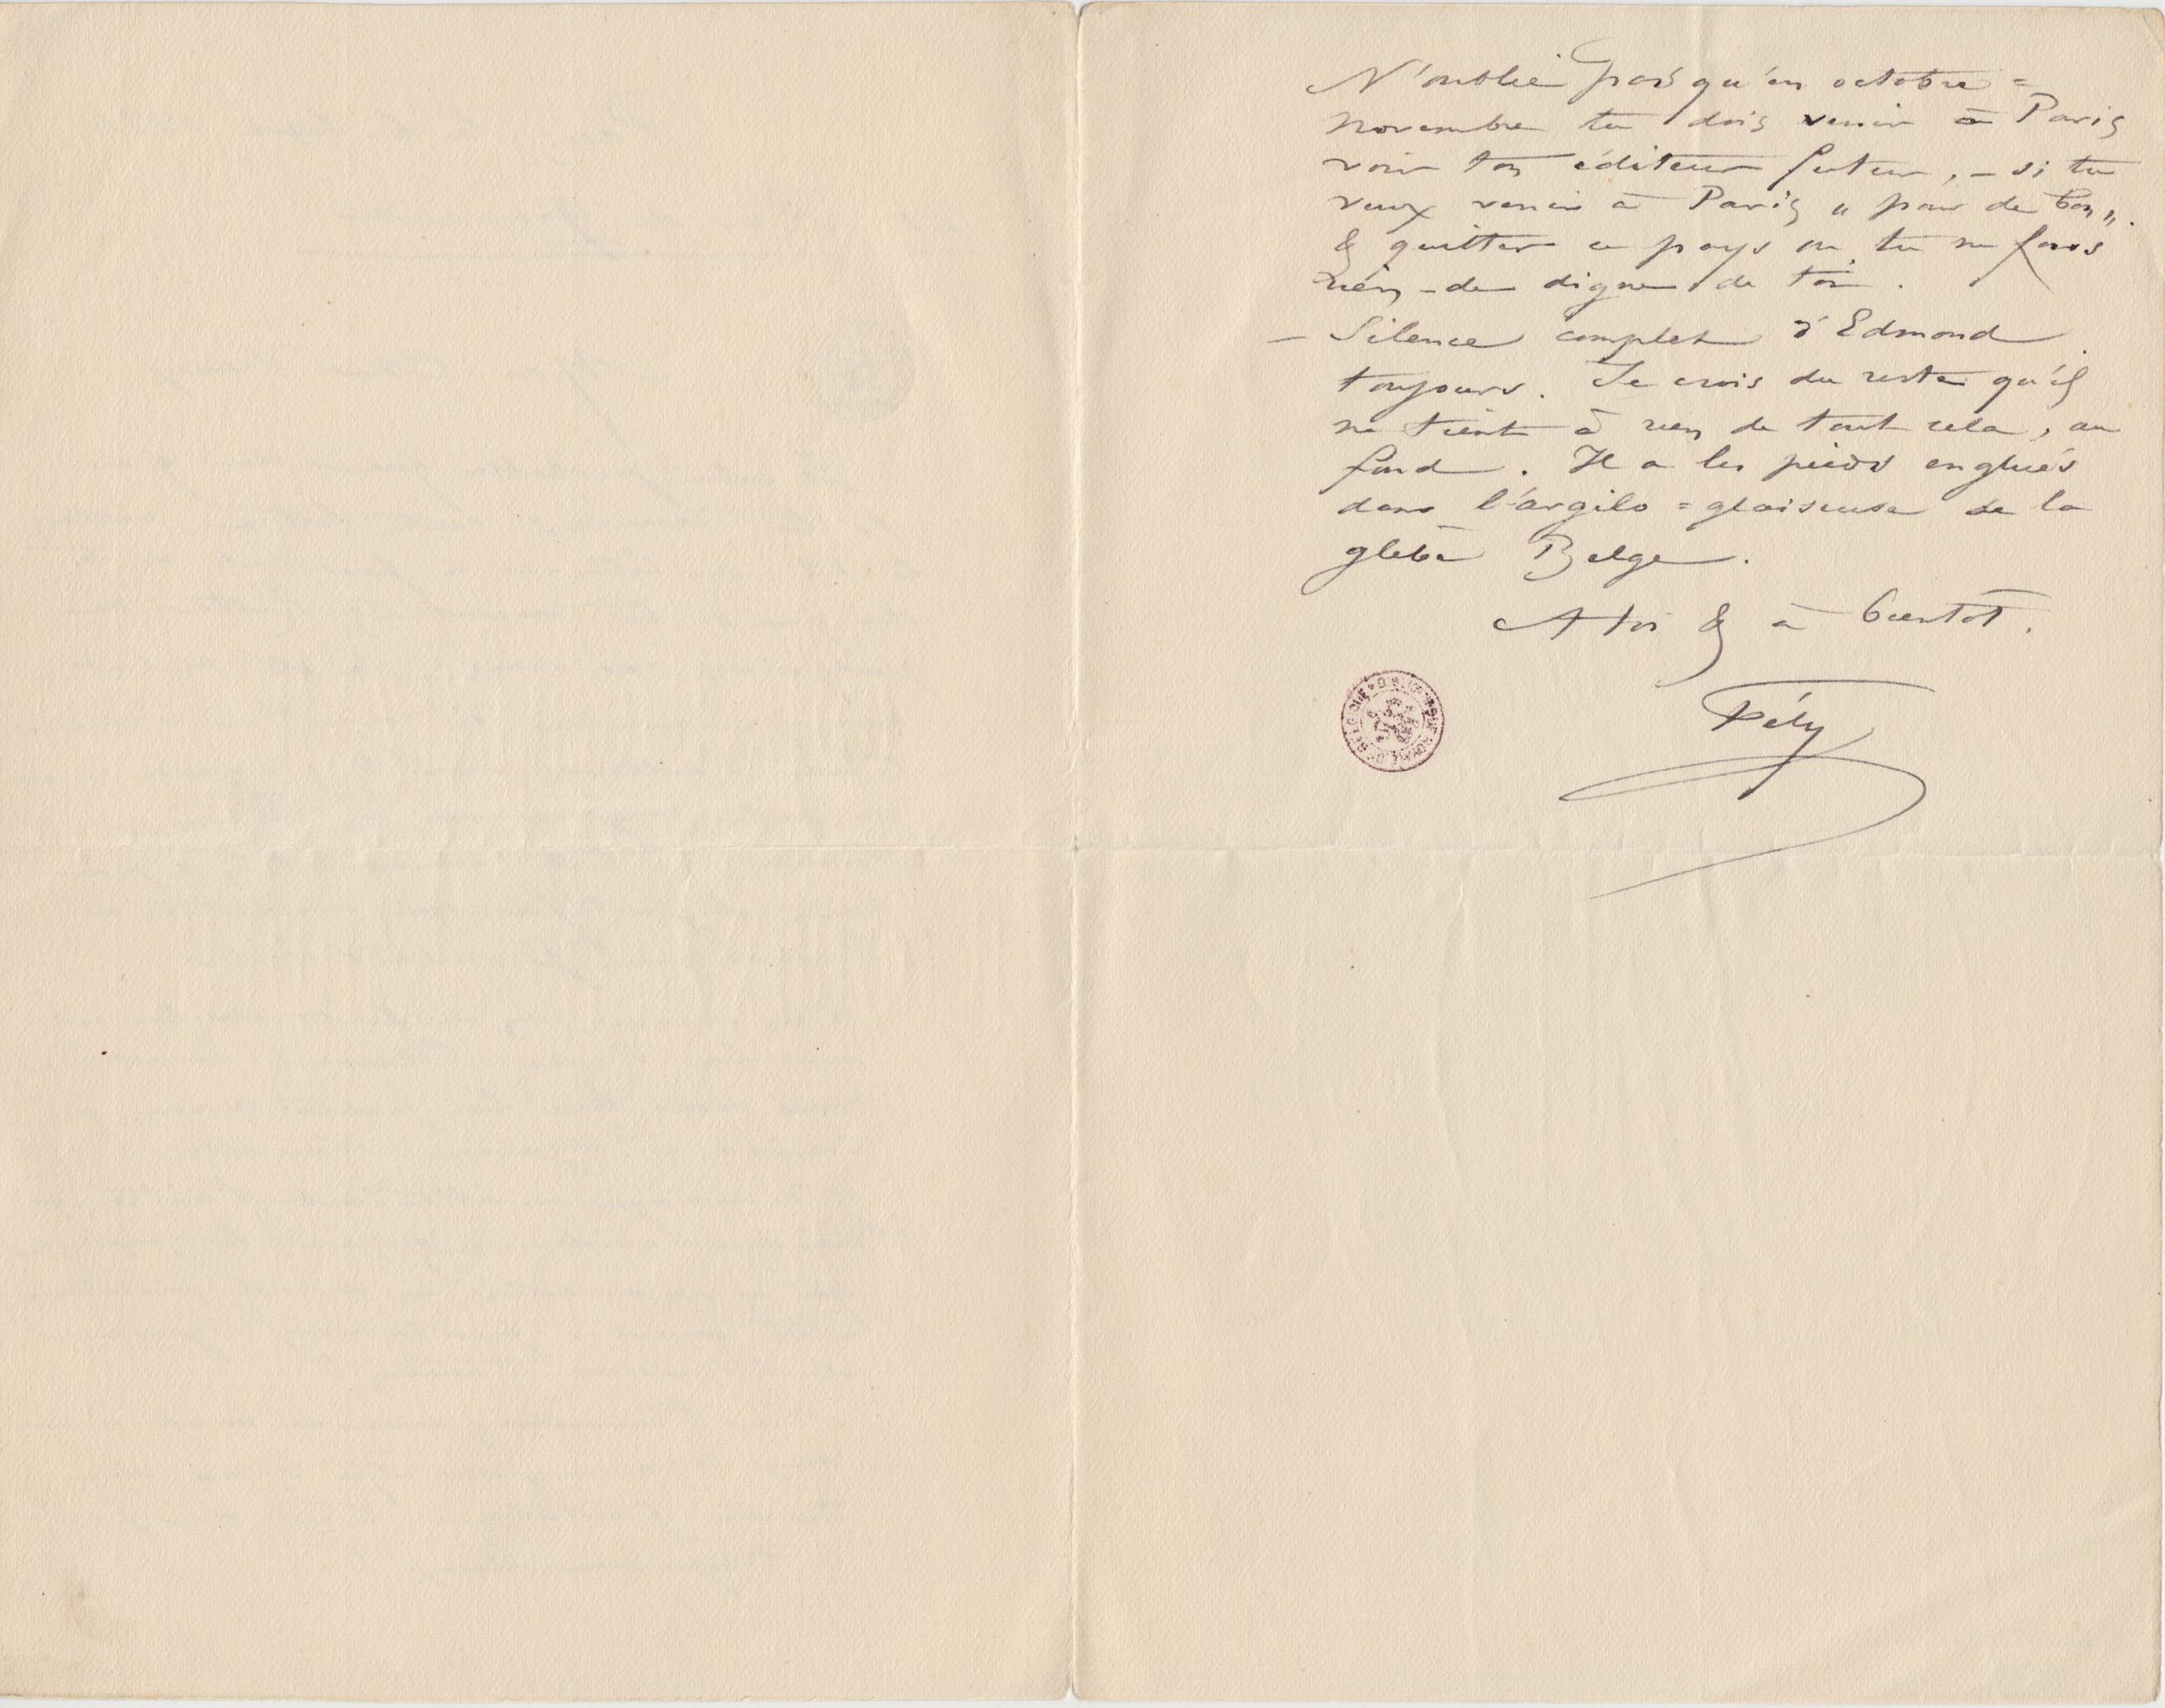 N'oublie pas qu'en octobre =
novembre tu dois venir à Paris
voir ton éditeur futur, – si tu
veux venir à Paris „ pour de bon „.
& quitter ce pays ou tu ne fais
rien – de digne de toi.
– Silence complet d'Edmond
toujours. Je crois du reste qu'il
ne tient à rien de tout cela, au
fond. Il a les pieds englués
dans l'argilo = glaiseuse de la
glèbe Belge.
A toi & à bientôt.
Fély